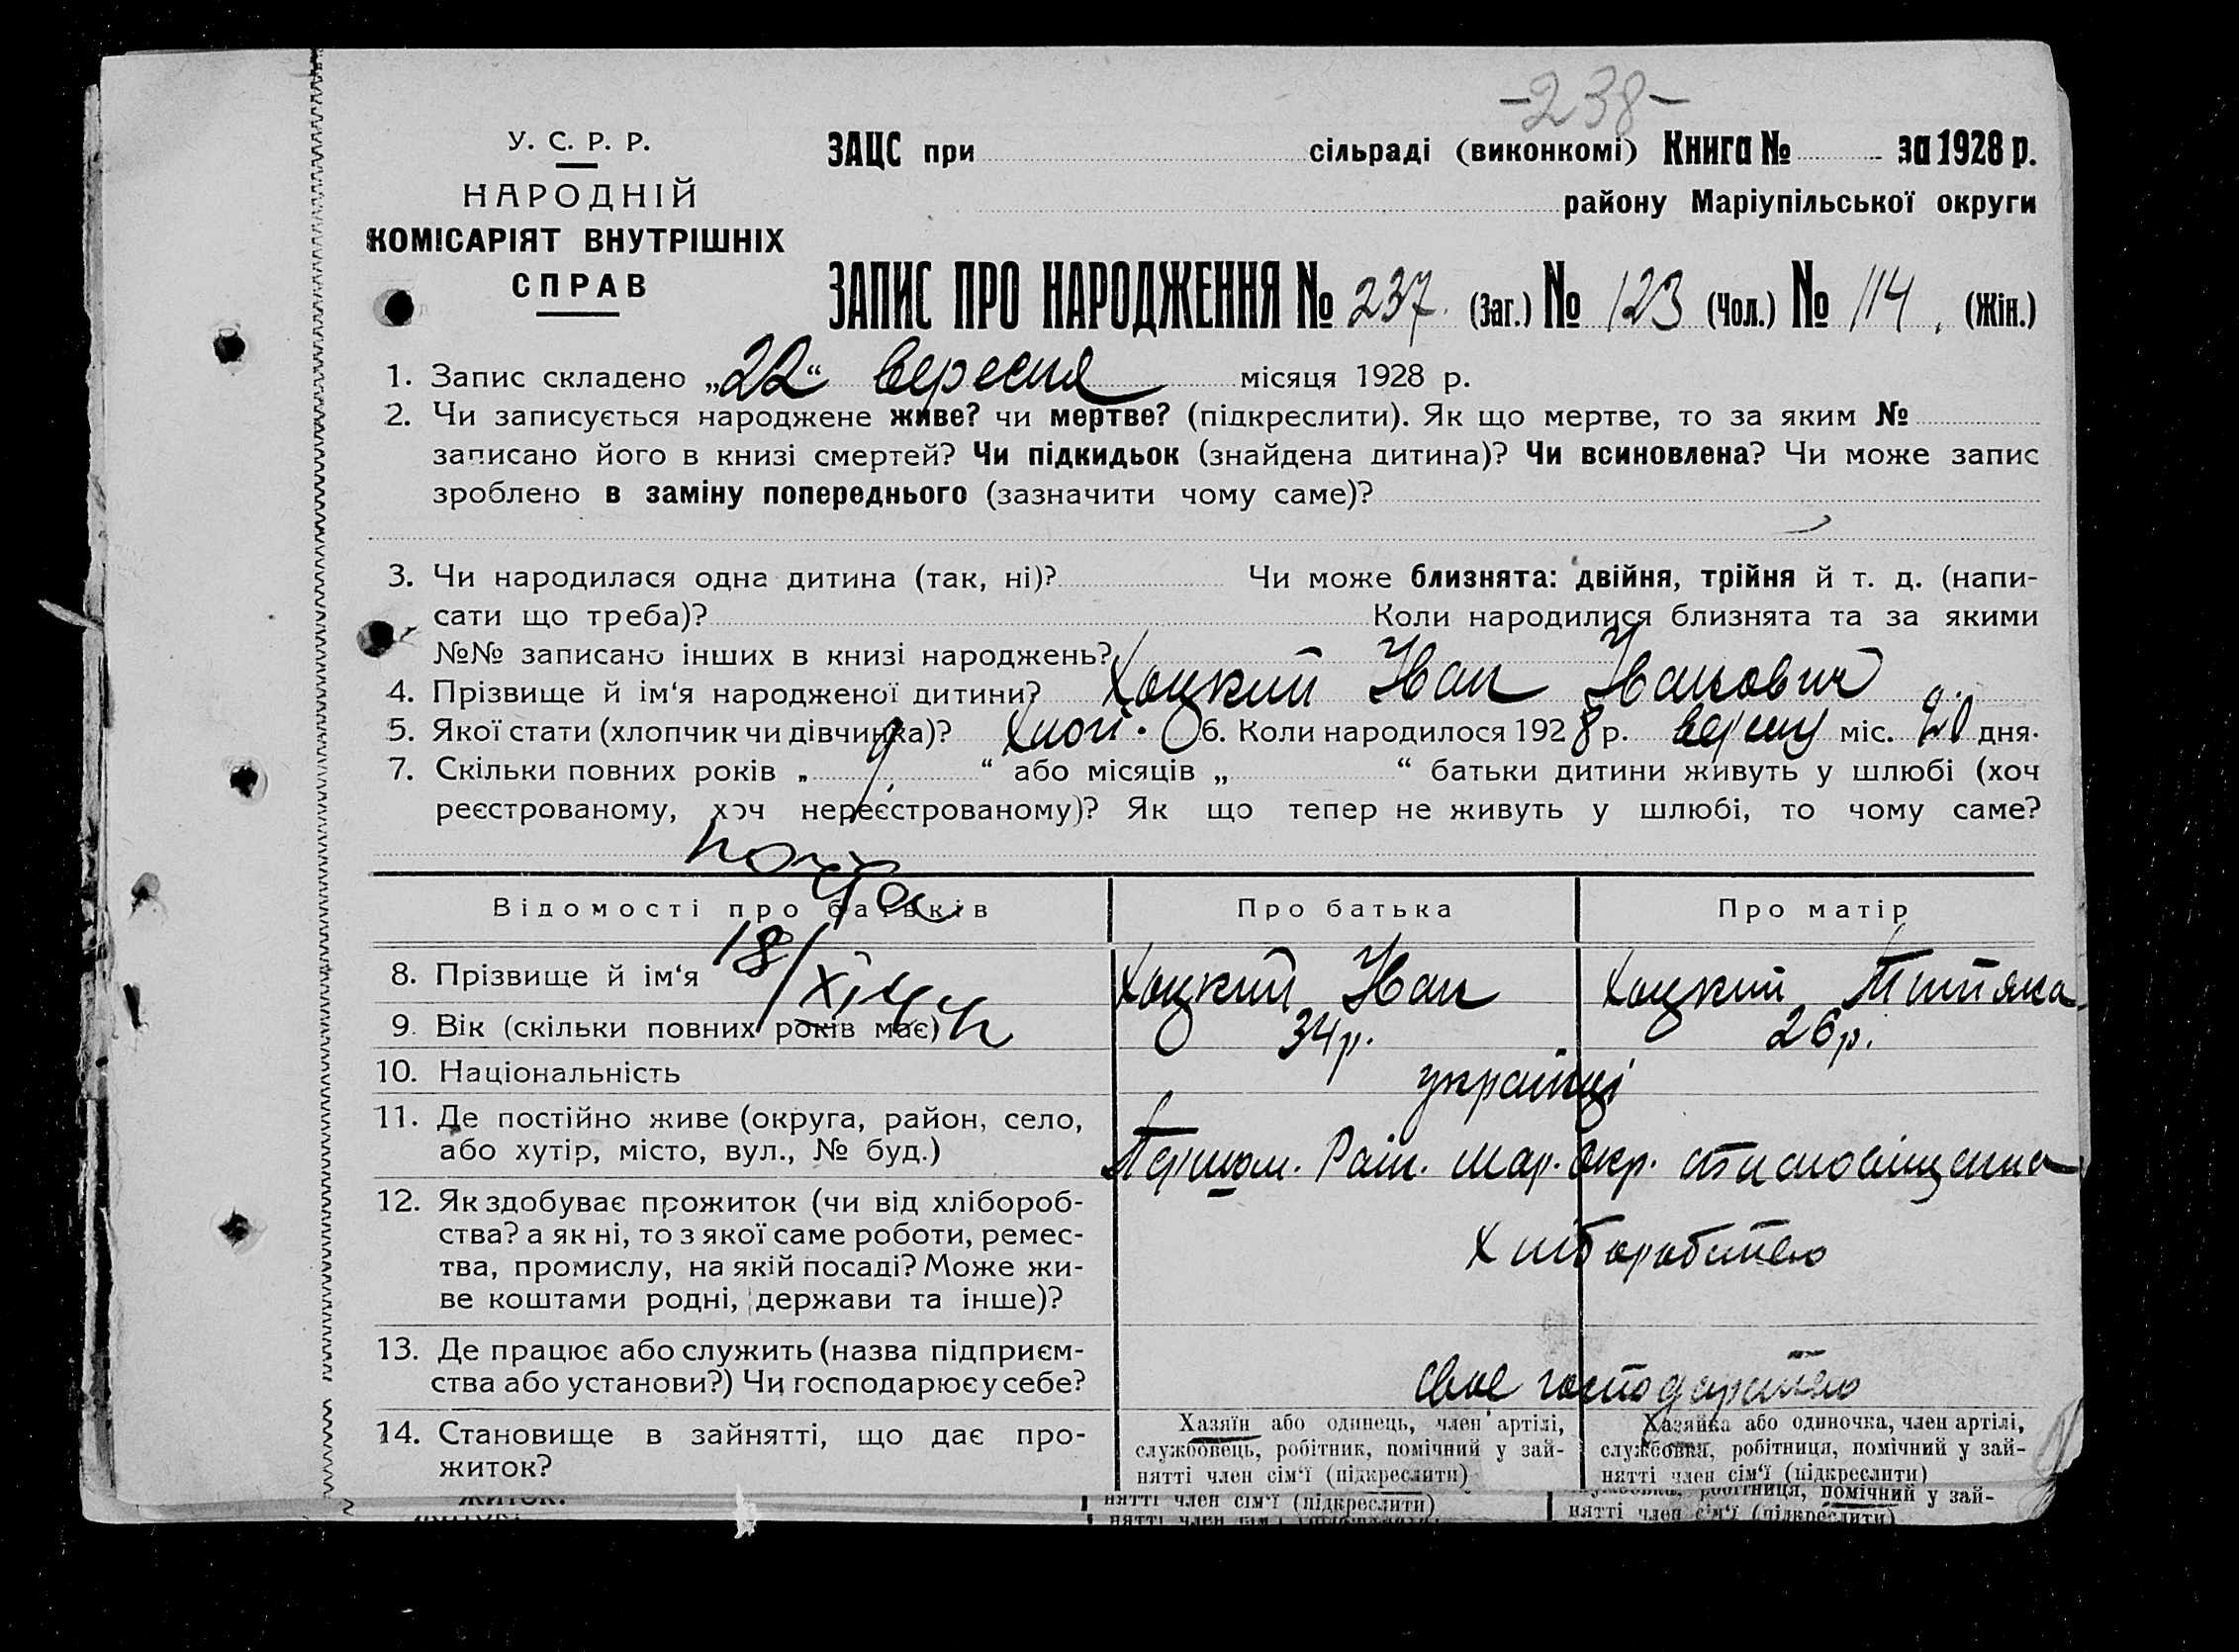 -238-
У. С. Р. Р.
НАРОДНІЙ
КОМІСАРІЯТ ВНУТРІШНІХ
СПРАВ
ЗАЦС при сільраді (виконкомі) Книга № за 1928 р.
району Маріупільської округи
ЗАПИС ПРО НАРОДЖЕННЯ № 237. (Заг.) № 123 (Чол.) № 114. (Жін.)
1. Запис складено „22“ вересня місяця 1928 р.
2. Чи записується народжене живе? чи мертве? (підкреслити). Як що мертве, то за яким №
записано його в книзі смертей? Чи підкидьок (знайдена дитина)? Чи всиновлена? Чи може запис
зроблено в заміну попереднього (зазначити чому саме)?
3. Чи народилася одна дитина (так, ні)? Чи може близнята: двійня, трійня й т. д. (напи-
сати що треба)? Коли народилися близнята та за якими
№№ записано інших в книзі народжень?
4. Прізвище й ім‘я народженої дитини? Хоцкий Иван Иванович
5. Якої стати (хлопчик чи дівчинка)? Хлоп. 6. Коли народилося 1928 р. міс. 20 дня.
7. Скільки повних років „ 9 “ або місяців „ “ батьки дитини живуть у шлюбі (хоч
реєстрованому, хоч нереєстрованому)? Як що тепер не живуть у шлюбі, то чому саме?
Відомості про батьків Про батька Про матір
18/XI
8. Прізвище й ім‘я Хоцкий Иван Хоцкий
9. Вік (скільки повних років має) 34 р. 26 р.
10. Національність українці
11. Де постійно живе (округа, район, село,
або хутір, місто, вул., № буд.) Райн. Мар. Окр.
12. Як здобуває прожиток (чи від хлібороб-
ства? а як ні, то з якої саме роботи, ремес-
тва, промислу, на якій посаді? Може жи-
ве коштами родні, держави та інше)?
13. Де працює або служить (назва підприєм-
ства або установи?) Чи господарює у себе? свое
14. Становище в зайнятті, що дає про-
житок?
Хазяїн або одинець, член артілі,
службовець, робітник, помічний у зай-
нятті член сім‘ї (підкреслити)
Хазяйка або одиночка, член артілі,
службовка, робітниця, помічний у зай-
нятті член сім‘ї (підкреслити)
нятті член сім‘ї (підкреслити)
робітниця, помічний у зай-
нятті член сім‘ї (підкреслити)